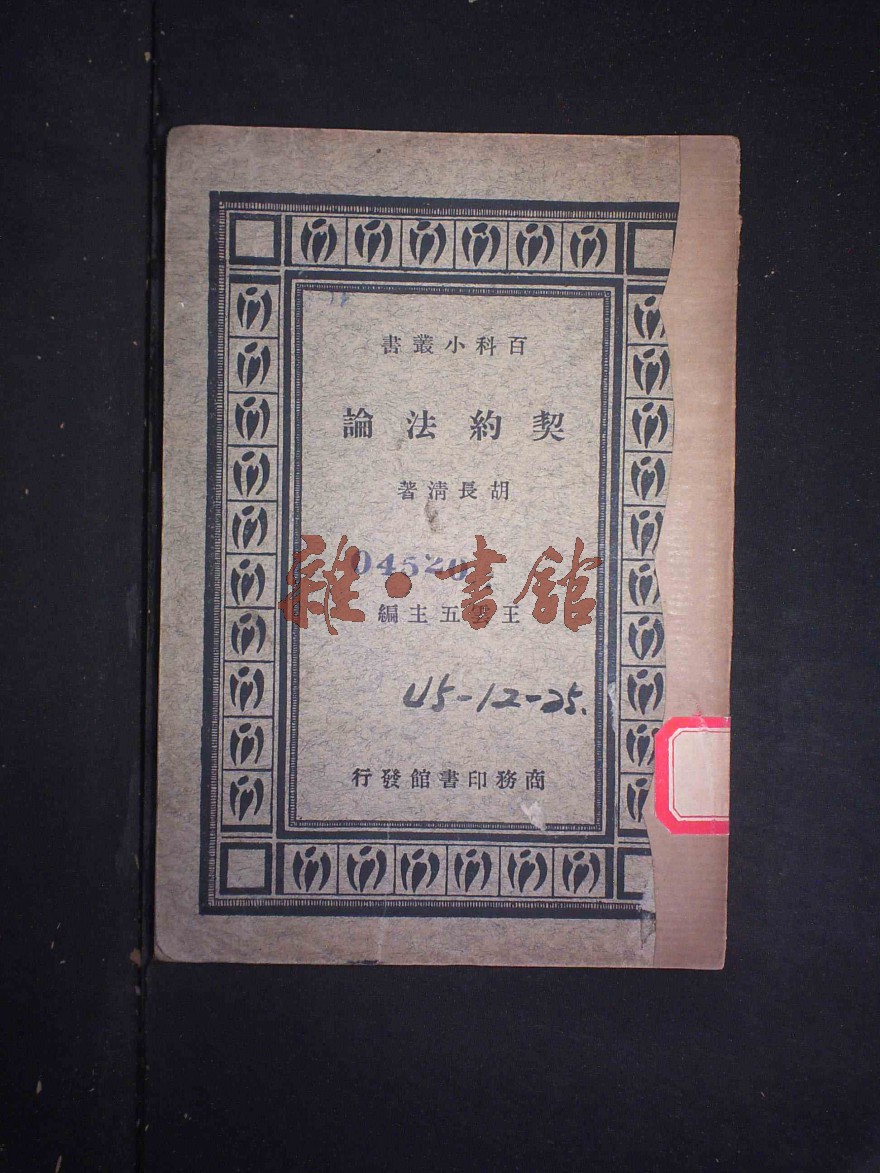 百科小叢書
契約法論
胡長清著
04520
雜·書館
王雲五主編
45-12-25.
商務印書館發行